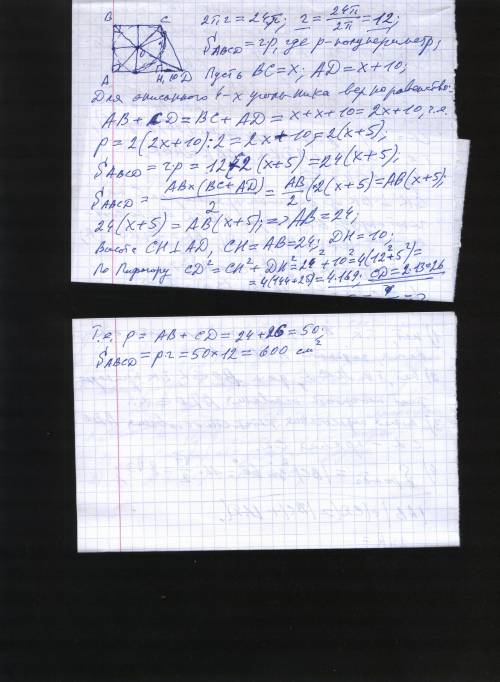 B C
A H 10 D
2πr = 24π; r = 24π/2π = 12;
S_ABCD = rp, где p - полупериметр;
Пусть BC = x; AD = x + 10;
Для описанного 4-х угольника верно равенство:
AB + CD = BC + AD = x + x + 10 = 2x + 10, т.е.
p = 2(2x + 10):2 = 2x + 10 = 2(x+5);
S_ABCD = rp = 12·2(x+5) = 24(x+5);
S_ABCD = AB×(BC+AD)/2 = AB/2 (·2(x+5) = AB(x+5);
24(x+5) = AB(x+5); => AB = 24;
Высота CH⊥AD, CH = AB = 24; DH = 10;
По Пифагору CD² = CH² + DH² = 24² + 10² = 4(12² + 5²) =
= 4(144+25) = 4·169; CD = 2·13 = 26
Т.е. p = AB + CD = 24 + 26 = 50;
S_ABCD = p·r = 50×12 = 600 см²